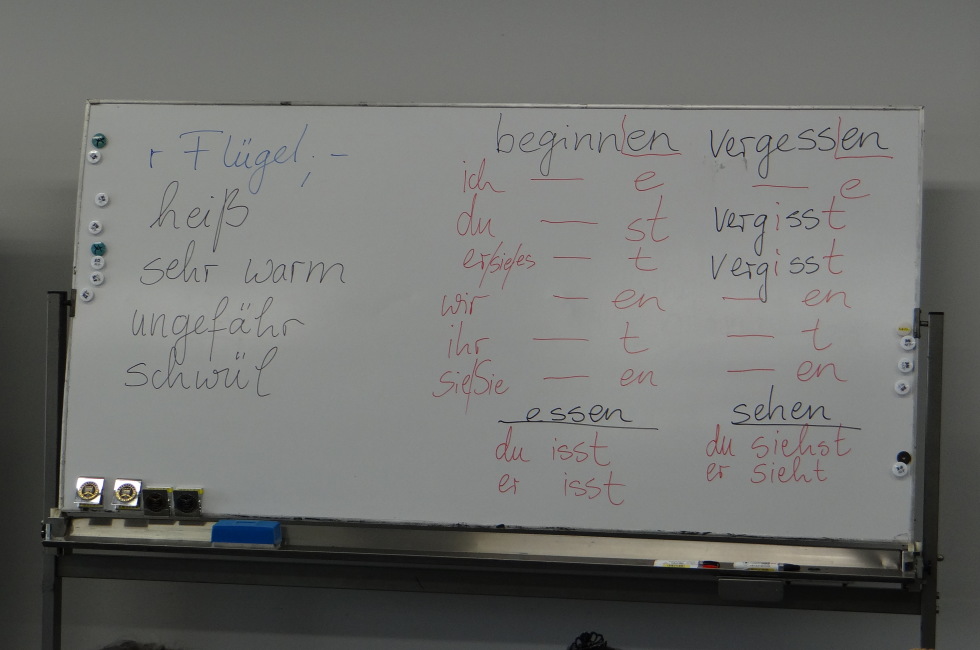 r Flügel, -
heiß
sehr warm
ungefähr
schwül
beginn|en vergess|en
ich — e — e
du — st vergisst
er/sie/es — t vergisst
wir — en — en
ihr — t — t
sie/Sie — en — en
essen sehen
du isst du siehst
er isst er sieht